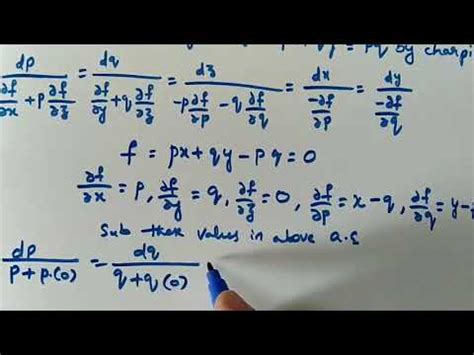 = pq by charpi
dp/(∂f/∂x + p ∂f/∂z) = dq/(∂f/∂y + q ∂f/∂z) = dz/(-p ∂f/∂p - q ∂f/∂q) = dx/(-∂f/∂p) = dy/(-∂f/∂q)
f = px + qy - pq = 0
∂f/∂x = p, ∂f/∂y = q, ∂f/∂z = 0, ∂f/∂p = x - q, ∂f/∂q = y -
Sub these values in above a.ε
dp/(p + p.(0)) = dq/(q + q (0))